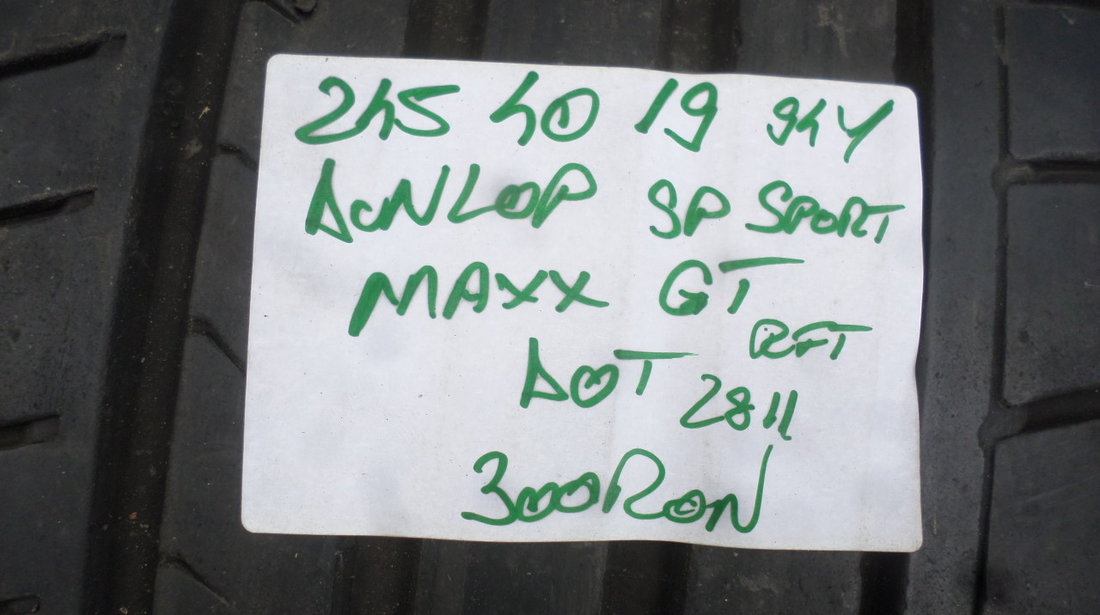 245 40 19 94Y
DUNLOP SP SPORT
MAXX GT
RFT
DOT 2811
300RON